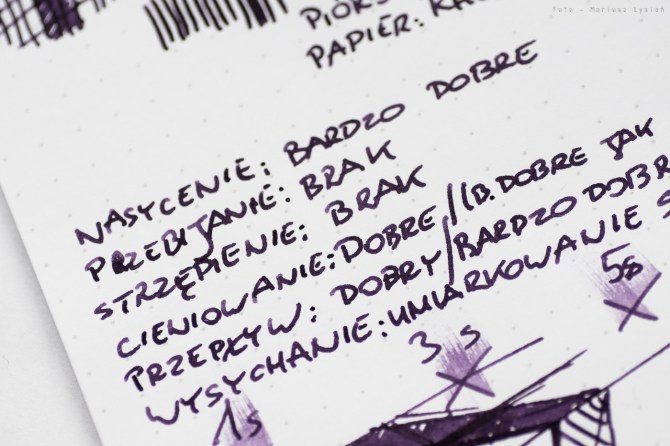 Foto - Mariusz Łysiak
PAPIER:
NASYCENIE: BARDZO DOBRE
PRZEBIJANIE: BRAK
STRZĘPIENIE: BRAK
CIENIOWANIE: DOBRE / (B. DOBRE JAK
PRZEPŁYW: DOBRY / BARDZO DOBR
WYSYCHANIE: UMIARKOWANIE S
1s 3s 5s